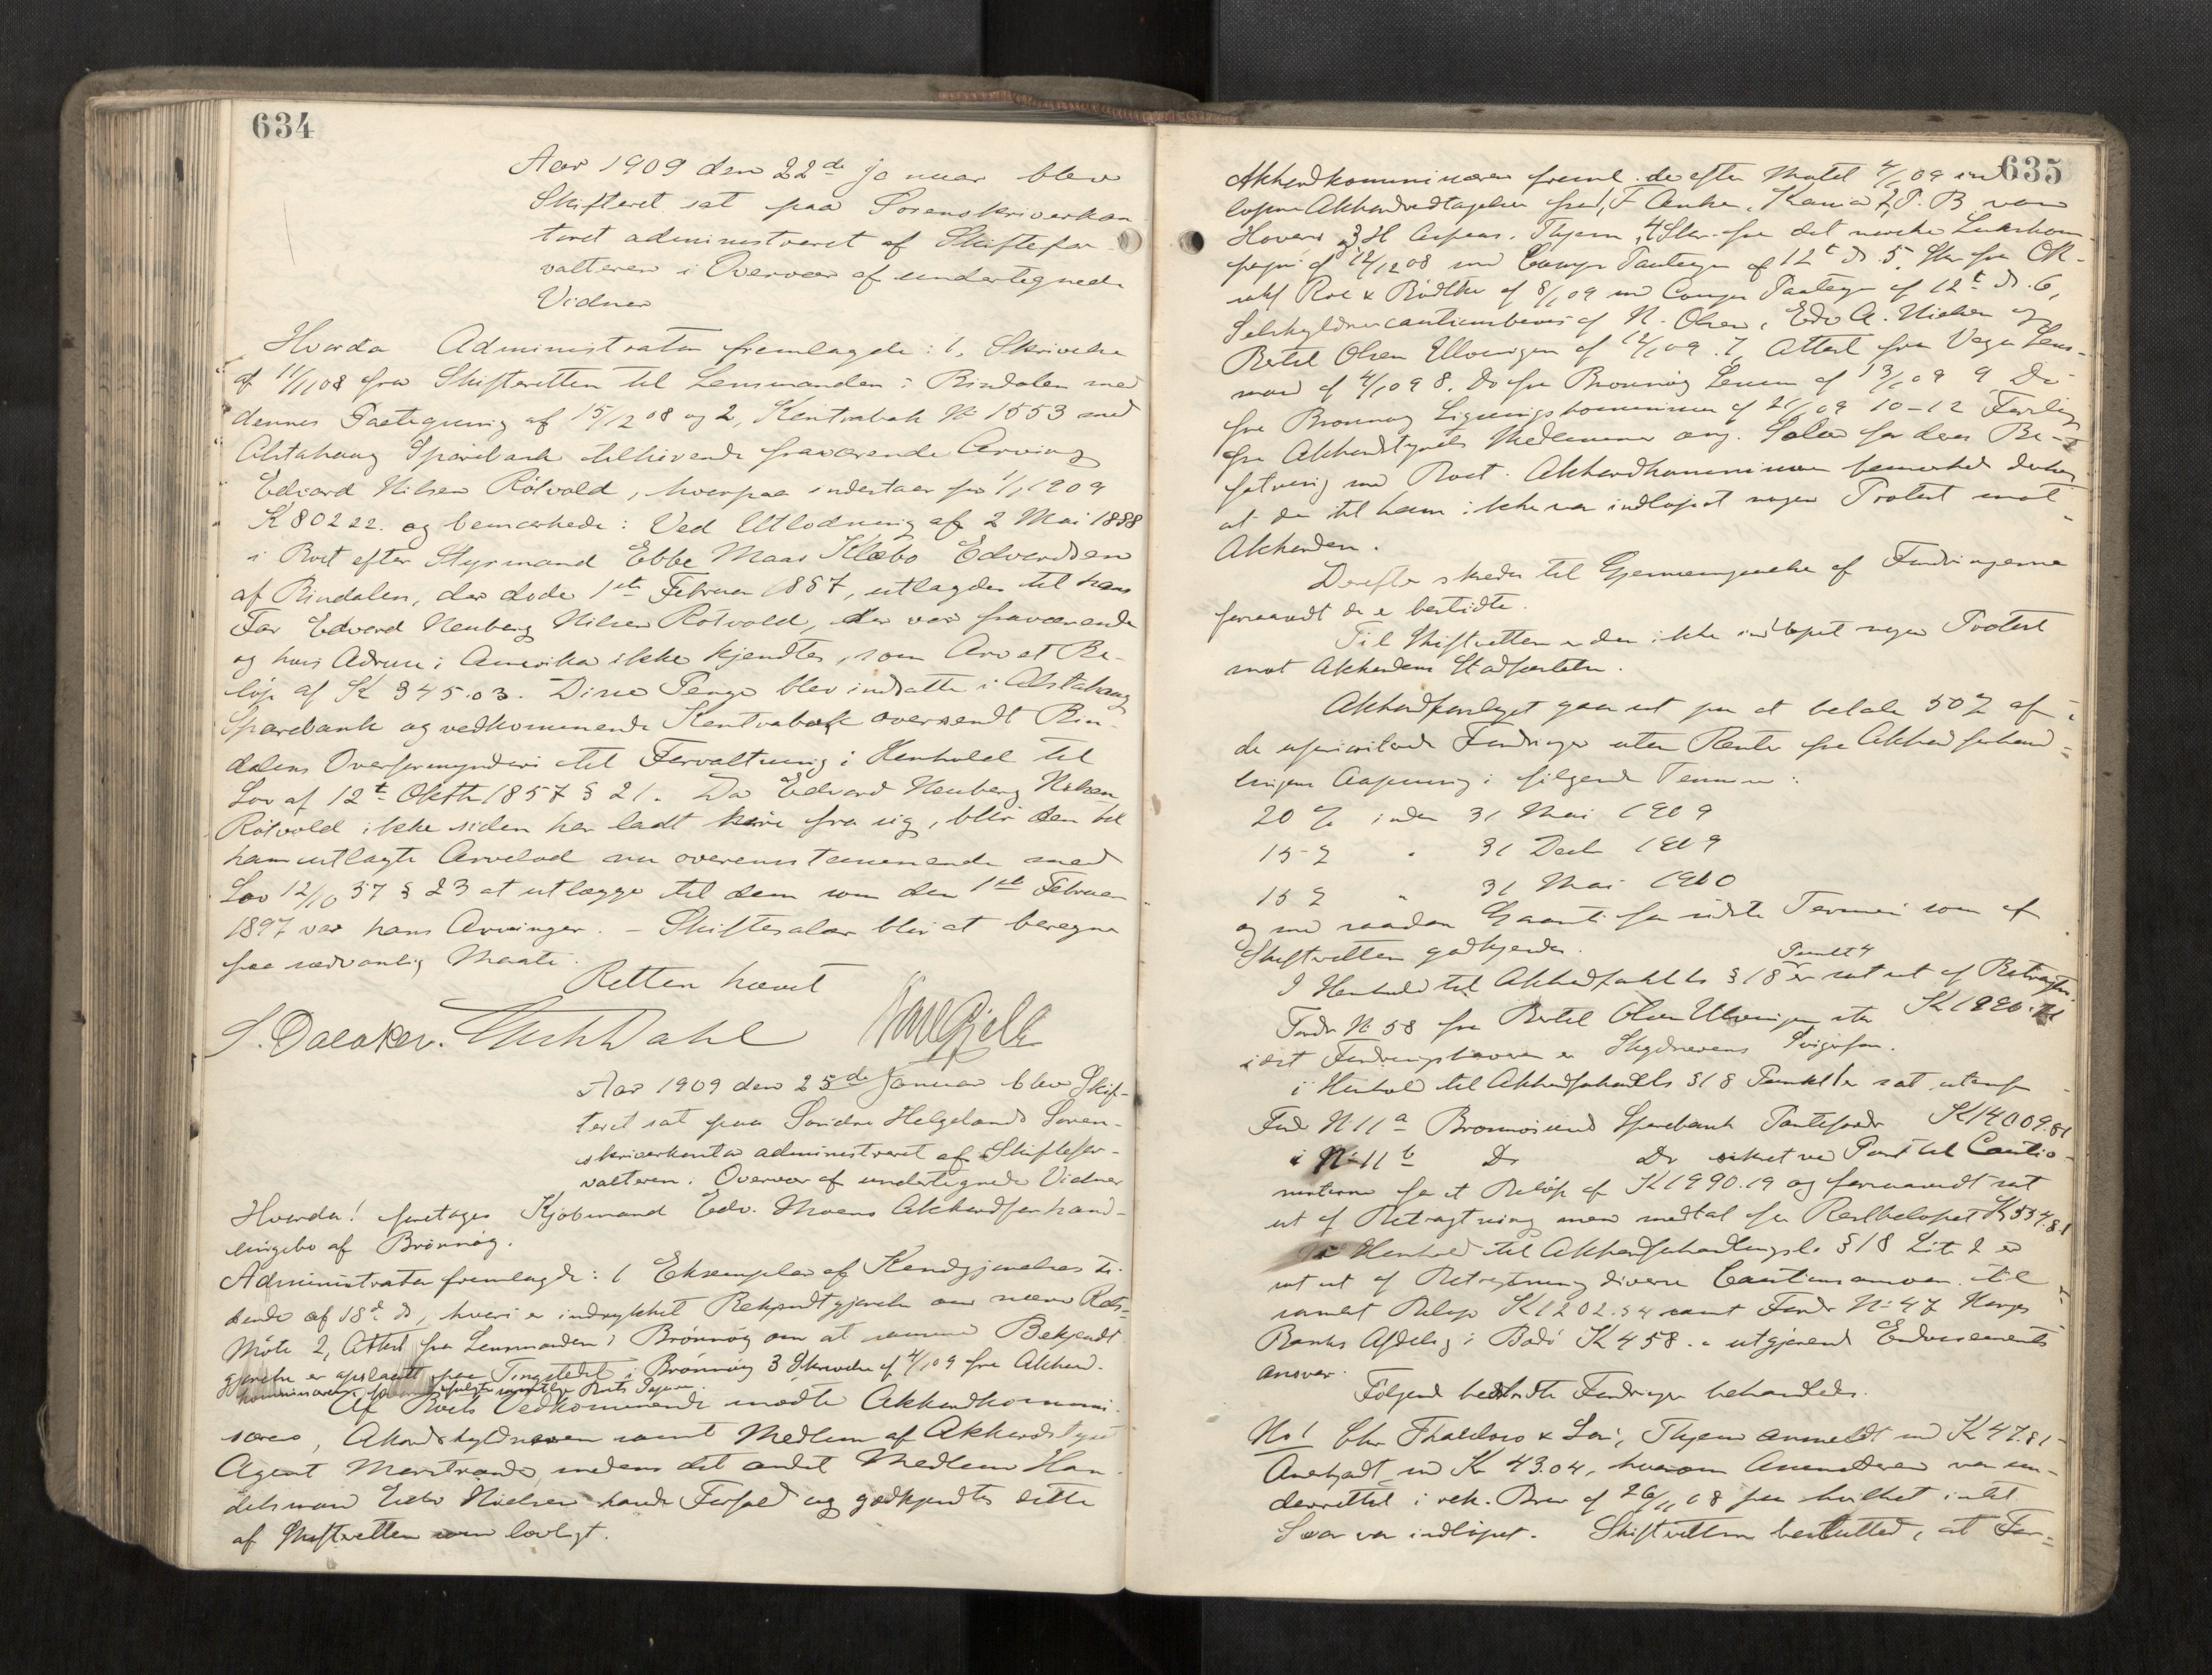 634
Aar 1909 den 22de Januar blev
Skifteret sat paa Sorenskriverkon-
toret administreret af Skiftefor-
valteren i Overvær af undertegnede
Vidner
Hvorda Administrator fremlagde: 1, Skrivelse
af 11/11 08 fra Skifteretten til Lensmanden i Bindalen med
dennes Paategning af 15/12 08 og 2, Kontrabok No 1553 med
Alstahaug Sparebank tilhørende fraværende Arving
Edvard Nilsen Rölvold, hvorpaa indestaar pr 1/1 1909
K 802 22. og bemærkede: Ved Utlodning af 2 Mai 1888
i Boet efter Styrmand Ebbe Maas Klæbo Edvardsen
af Bindalen, der döde 1ste Februar 1887, utlagdes til hans
Far Edvard Neuberg Nilsen Rölvold, der var fraværende
og hvis Adresse i Amerika ikke kjendtes, som Arv et Be-
löp af K 345.03. Disse Penge blev indsatte i Alstahaug
Sparebank og vedkommende Kontrabok oversendt Bin-
dalens Overformynderi til Forvaltning i Henhold til
Lov af 12te Oktbr 1857 § 21. Da Edvard Neuberg Nilsen
Rölvold ikke siden har ladt höre fra sig, blir den til
ham utlagte Arvelod nu overensstemmende med
Lov 12/10 57 § 23 at utlægge til dem som den 1ste Februar
1897 var hans Arvinger. – Skiftesalær blir at beregne
paa sedvanlig Maate.
Retten hævet
S. Dalaker. Dahl
Aar 1909 den 25de Januar blev Skif-
teret sat paa Söndre Helgelands Soren-
skriverkontor administreret af Skiftefor-
valteren i Overvær af undertegnede Vidner
Hvorda! foretages Kjöbmand Edv. Moens Akkordforhand-
lingsbo af Brönnöy.
Administrator fremlagde: 1 Eksemplar af Kundgjörelses Ti-
dende af 18de ds, hvori er indrykket Bekjendtgjörelse om nærv. Rets-
Möte 2, Attest fra Lensmanden i Brönnöy om at samme Bekjendt
gjörelse er opslaaet paa Tingstedet i Brönnöy 3 Skrivelse af 4/1 09 fra Akkord-
kommissæren samtlige Boets Papirer.
Af Boets Vedkommende mödte Akkordkommi-
særen, Akordskyldneren samt Medlem af Akkordstyret
Agent Marstrand, medens det andet Medlem Han-
delsmand Edv Nielsen havde Forfald og godkjendtes dette
af Skifteretten som lovligt.
635
Akkordkommissæren freml. de efter Mötet 4/1 09 ind
lopne Akkordvedtagelser fra 1, F Anker, Kania 2, P. B van
Hoven og 3 H Aspaas. Thjem, 4 Skr. fra det norske
af 12/12 08 med Comps Paategn af 12te ds. 5, Skr fra
Roe & Bödtker af 8/1 09 med Comps Paategn af 12te ds. 6,
Selvskyldnercautionsbevis af N. Olsen, Edv A. Nielsen og
Bertel Olsen Ulvingen af 12/1 09. 7, Attest fra Vega Lens-
mand af 4/1 09 8. do fra Brönnöy Lensm af 13/1 09 9 Do
fra Brönnöy Ligningskommission af 21/1 09 10-12
fra Akkordstyrets Medlemmer ang. Salær for deres Be-
fatning med Boet. Akkordkommissæren bemærket derhos
at der til ham ikke var indlöpet nogen Protest mot
Akkorden.
Derefter skredes til Gjennemgaaelse af Fordringerne
forsaavidt de er bestridte.
Til Skifteretten er der ikke indlöpet nogen Protest
mot Akkordens Stadfæstelse.
Akkordforslaget gaar ut paa at betale 50 % af
de uprioriterede Fordringer uten Renter fra Akkordforhand-
lingens Aapning i fölgende Terminer:
20 % inden 31 Mai 1909
15 % " 31 Decbr 1909
15 % " 31 Mai 1910
og med saadan Garanti for sidste Termin som af
Skifteretten godkjendes.
I Henhold til Akkordforhdls § 18 Punkt 4 er sat ut af Betragtn.
Fordr No 58 fra Bertel Olsen Ulvingen stor K 1990.
idet Fordringshaveren er Skyldnerens Svigerfar.
i Henhold til Akkordforhdls § 18 Punkt 1 er sat utenfor
Fordr No 11 a Brönnösund Sparebank Pantefordr K 14009.81
i No 11 b Do Do sikret ved Pant til Cautio-
nisterne for et Belöp af K 1990.19 og forsaavidt sat
ut af Betragtning men medtat for Restbelöpet K 534.81
i Henhold til Akkordforhandlingsl. § 18 Lit 2 er
sat ut af Betragtning diverse Cautionsansvar til
samlet Belöp K 1202.34 samt Fordr No 47 Norges
Banks Afdeling i Bodö K 458. – utgjörende Endossements
ansvar.
Fölgende bestridte Fordringer behandledes.
No 1 Chr Thaulow & Sön, Thjem anmeldt med K 47.81
Anerkjendt med Kr 43.04, hvorom Anmelderen var un-
derrettet i rek. Brev af 26/11 08 paa hvilket intet
Svar var indlöpet. Skifteretten besluttet, at For-